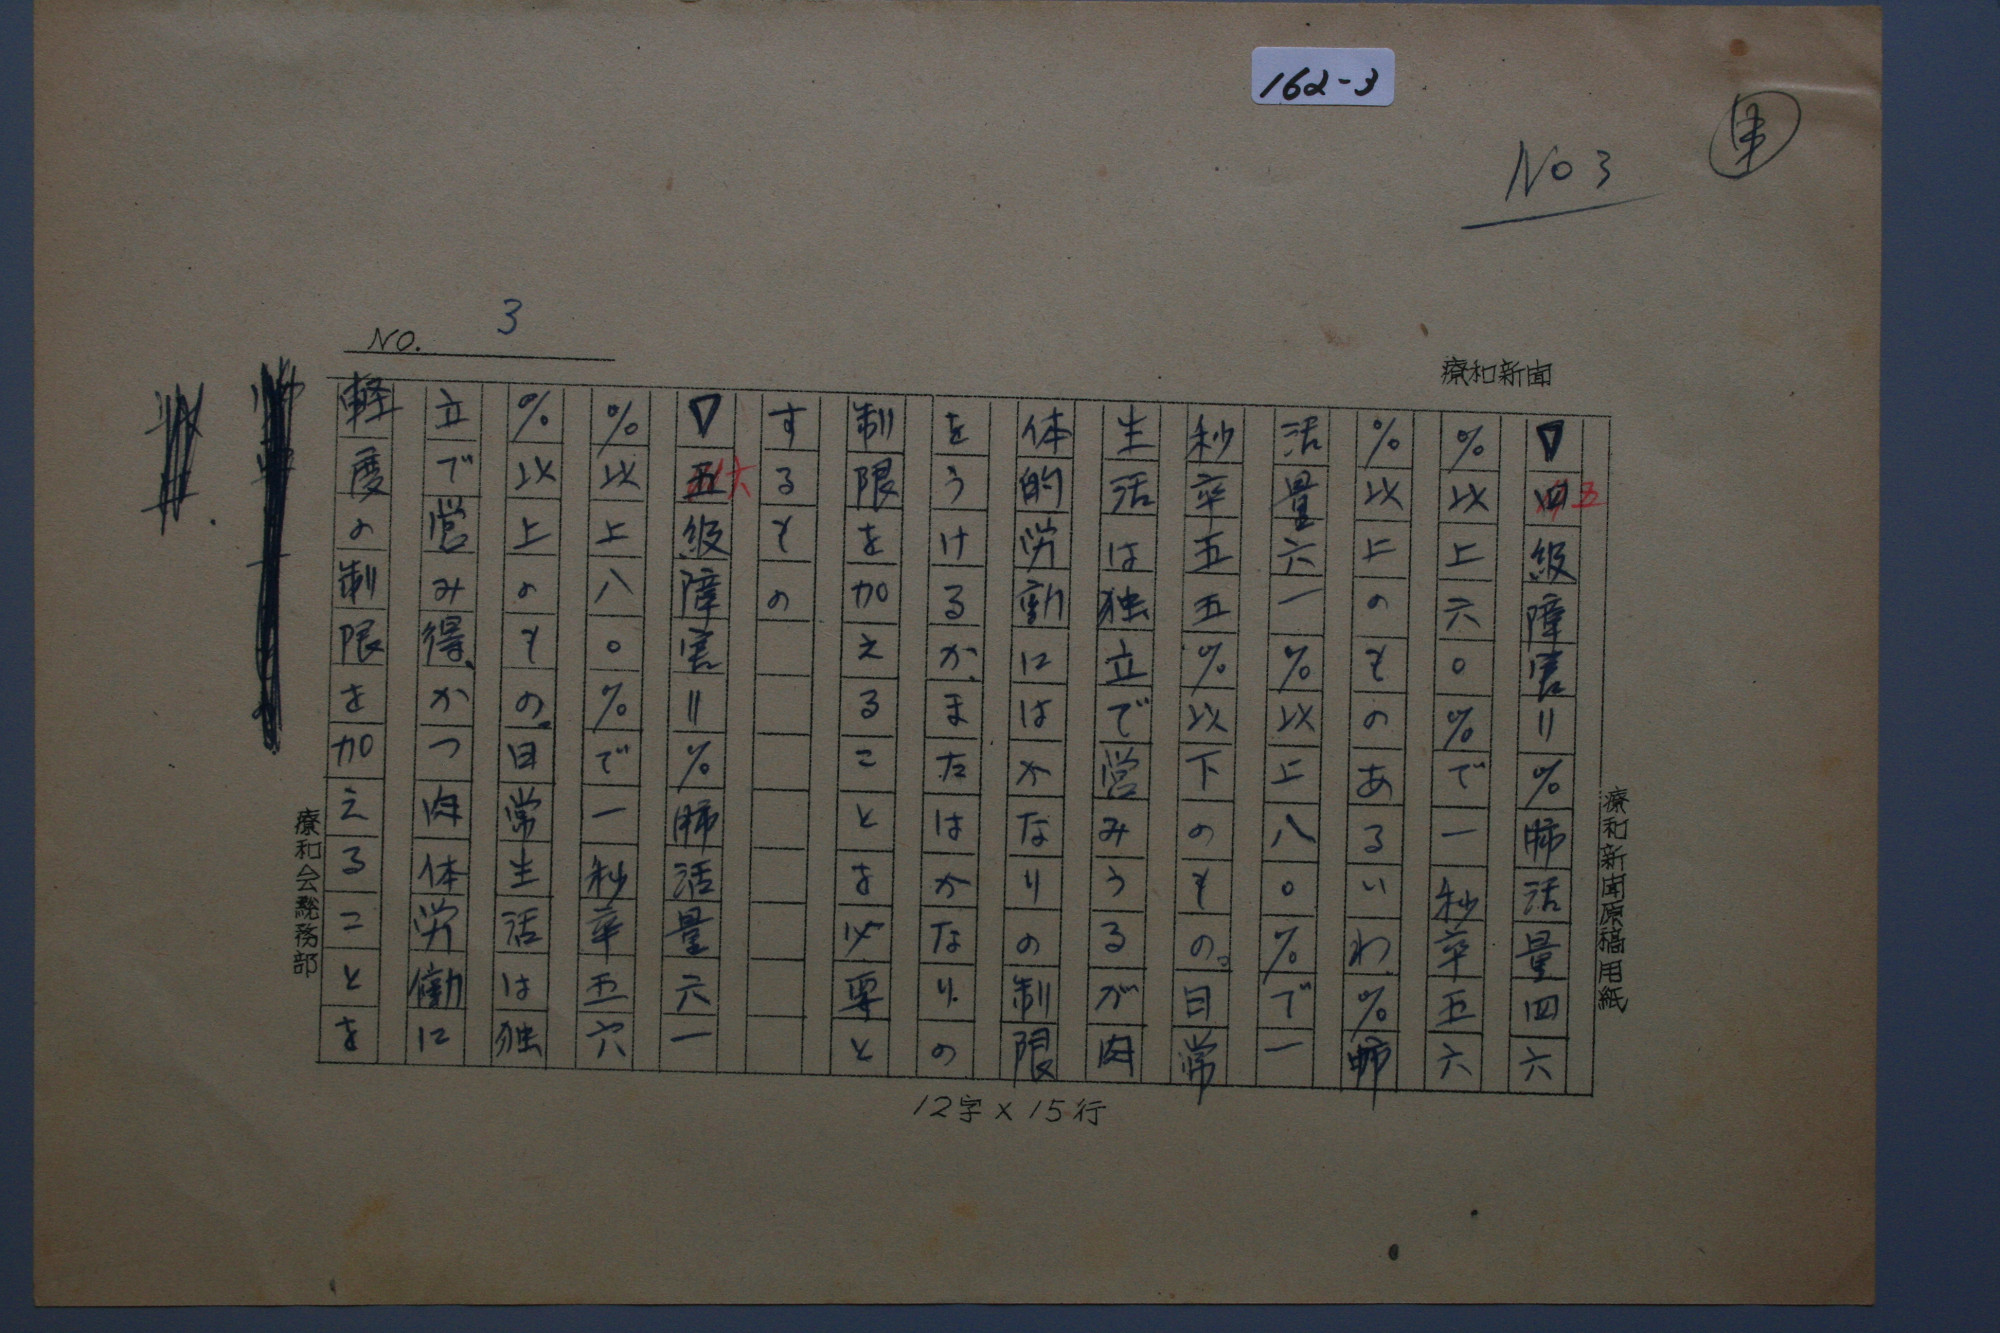 162-3
NO 3
NO. 3
療和新聞
療和新聞原稿用紙
▽五級障害=%肺活量四六
%以上六〇%で一秒率五六
%以上のものあるいわ%肺
活量六一%以上八〇%で一
秒率五五%以下のもの。日常
生活は独立で営みうるが肉
体的労働にはかなりの制限
をうけるか、またはかなりの
制限を加えることを必要と
するもの
▽六級障害=%肺活量六一
%以上八〇%で一秒率五六
%以上のもの。日常生活は独
立で営み得、かつ肉体労働に
軽度の制限を加えることを
療和会総務部
12字×15行